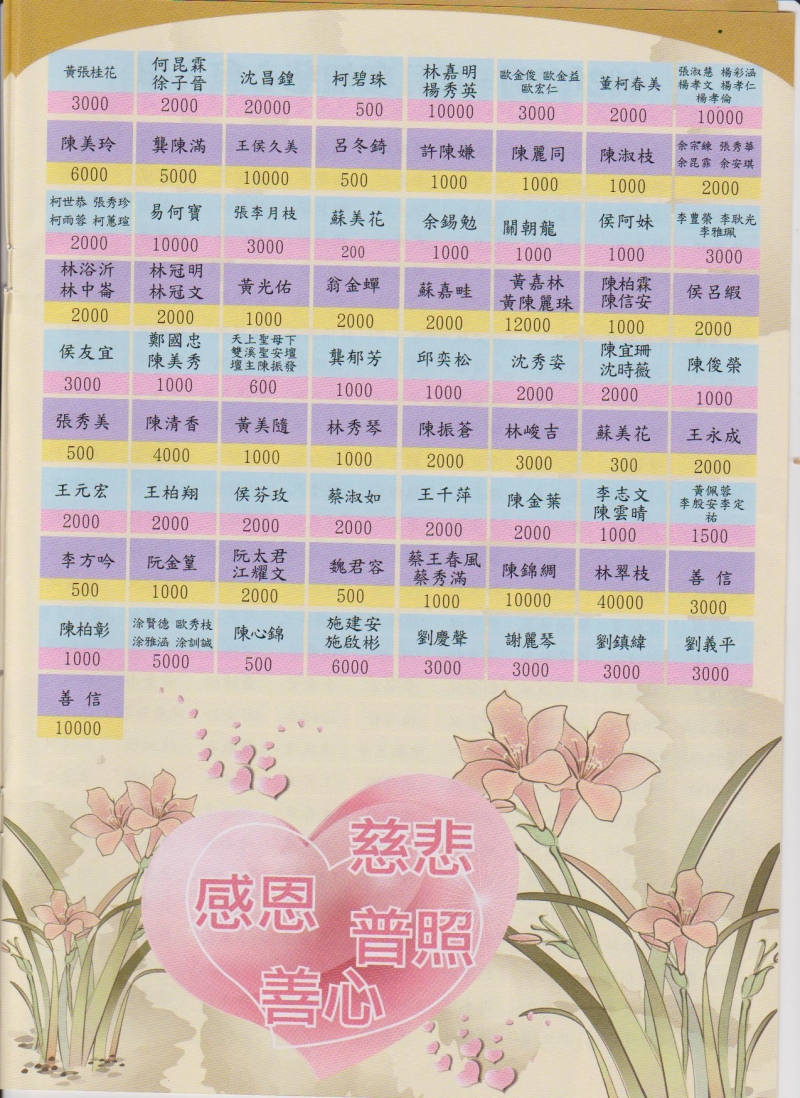 黃張桂花
3000
何昆霖
徐子晉
2000
沈昌鍠
20000
柯碧珠
500
林嘉明
楊秀英
10000
歐金俊 歐金益
歐宏仁
3000
董柯春美
2000
張淑慧 楊彩涵
楊孝文 楊孝仁
楊孝倫
10000
陳美玲
6000
龔陳滿
5000
王侯久美
10000
呂冬錡
500
許陳嫌
1000
陳麗同
1000
陳淑枝
1000
余宗錸 張秀華
余昆霏 余安琪
2000
柯世恭 張秀珍
柯雨蓉 柯蕙瑄
2000
易何寶
10000
張李月枝
3000
蘇美花
200
余錫勉
1000
關朝龍
1000
侯阿妹
1000
李豐榮 李耿光
李雅珮
3000
林浴沂
林中崙
2000
林冠明
林冠文
2000
黃光佑
1000
翁金蟬
2000
蘇嘉畦
2000
黃嘉林
黃陳麗珠
12000
陳柏霖
陳信安
1000
侯呂緞
2000
侯友宜
3000
鄭國忠
陳美秀
1000
天上聖母下
雙溪聖安壇
壇主陳振發
600
龔郁芳
1000
邱奕松
1000
沈秀姿
2000
陳宜珊
沈時薇
2000
陳俊榮
1000
張秀美
500
陳清香
4000
黃美隨
1000
林秀琴
1000
陳振蒼
2000
林峻吉
3000
蘇美花
300
王永成
2000
王元宏
2000
王柏翔
2000
侯芬玫
2000
蔡淑如
2000
王千萍
2000
陳金葉
2000
李志文
陳雲晴
1000
黃佩蓉
李殷安李定
祐
1500
李方吟
500
阮金篁
1000
阮太君
江耀文
2000
魏君容
500
蔡王春風
蔡秀滿
1000
陳錦綢
10000
林翠枝
40000
善信
3000
陳柏彰
1000
涂賢德 歐秀枝
涂雅涵 涂訓誠
5000
陳心錦
500
施建安
施啟彬
6000
劉慶聲
3000
謝麗琴
3000
劉鎮緯
3000
劉義平
3000
善信
10000
慈悲
感恩
普照
善心